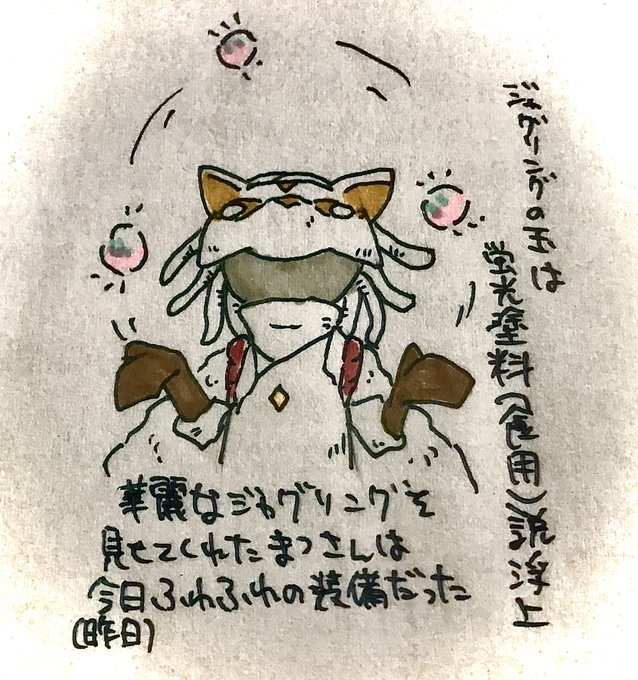 ジャグリングの玉は
蛍光塗料(食用)説浮上
華麗なジャグリングを
見せてくれたまつさんは
今日ふわふわの装備だった
(昨日)